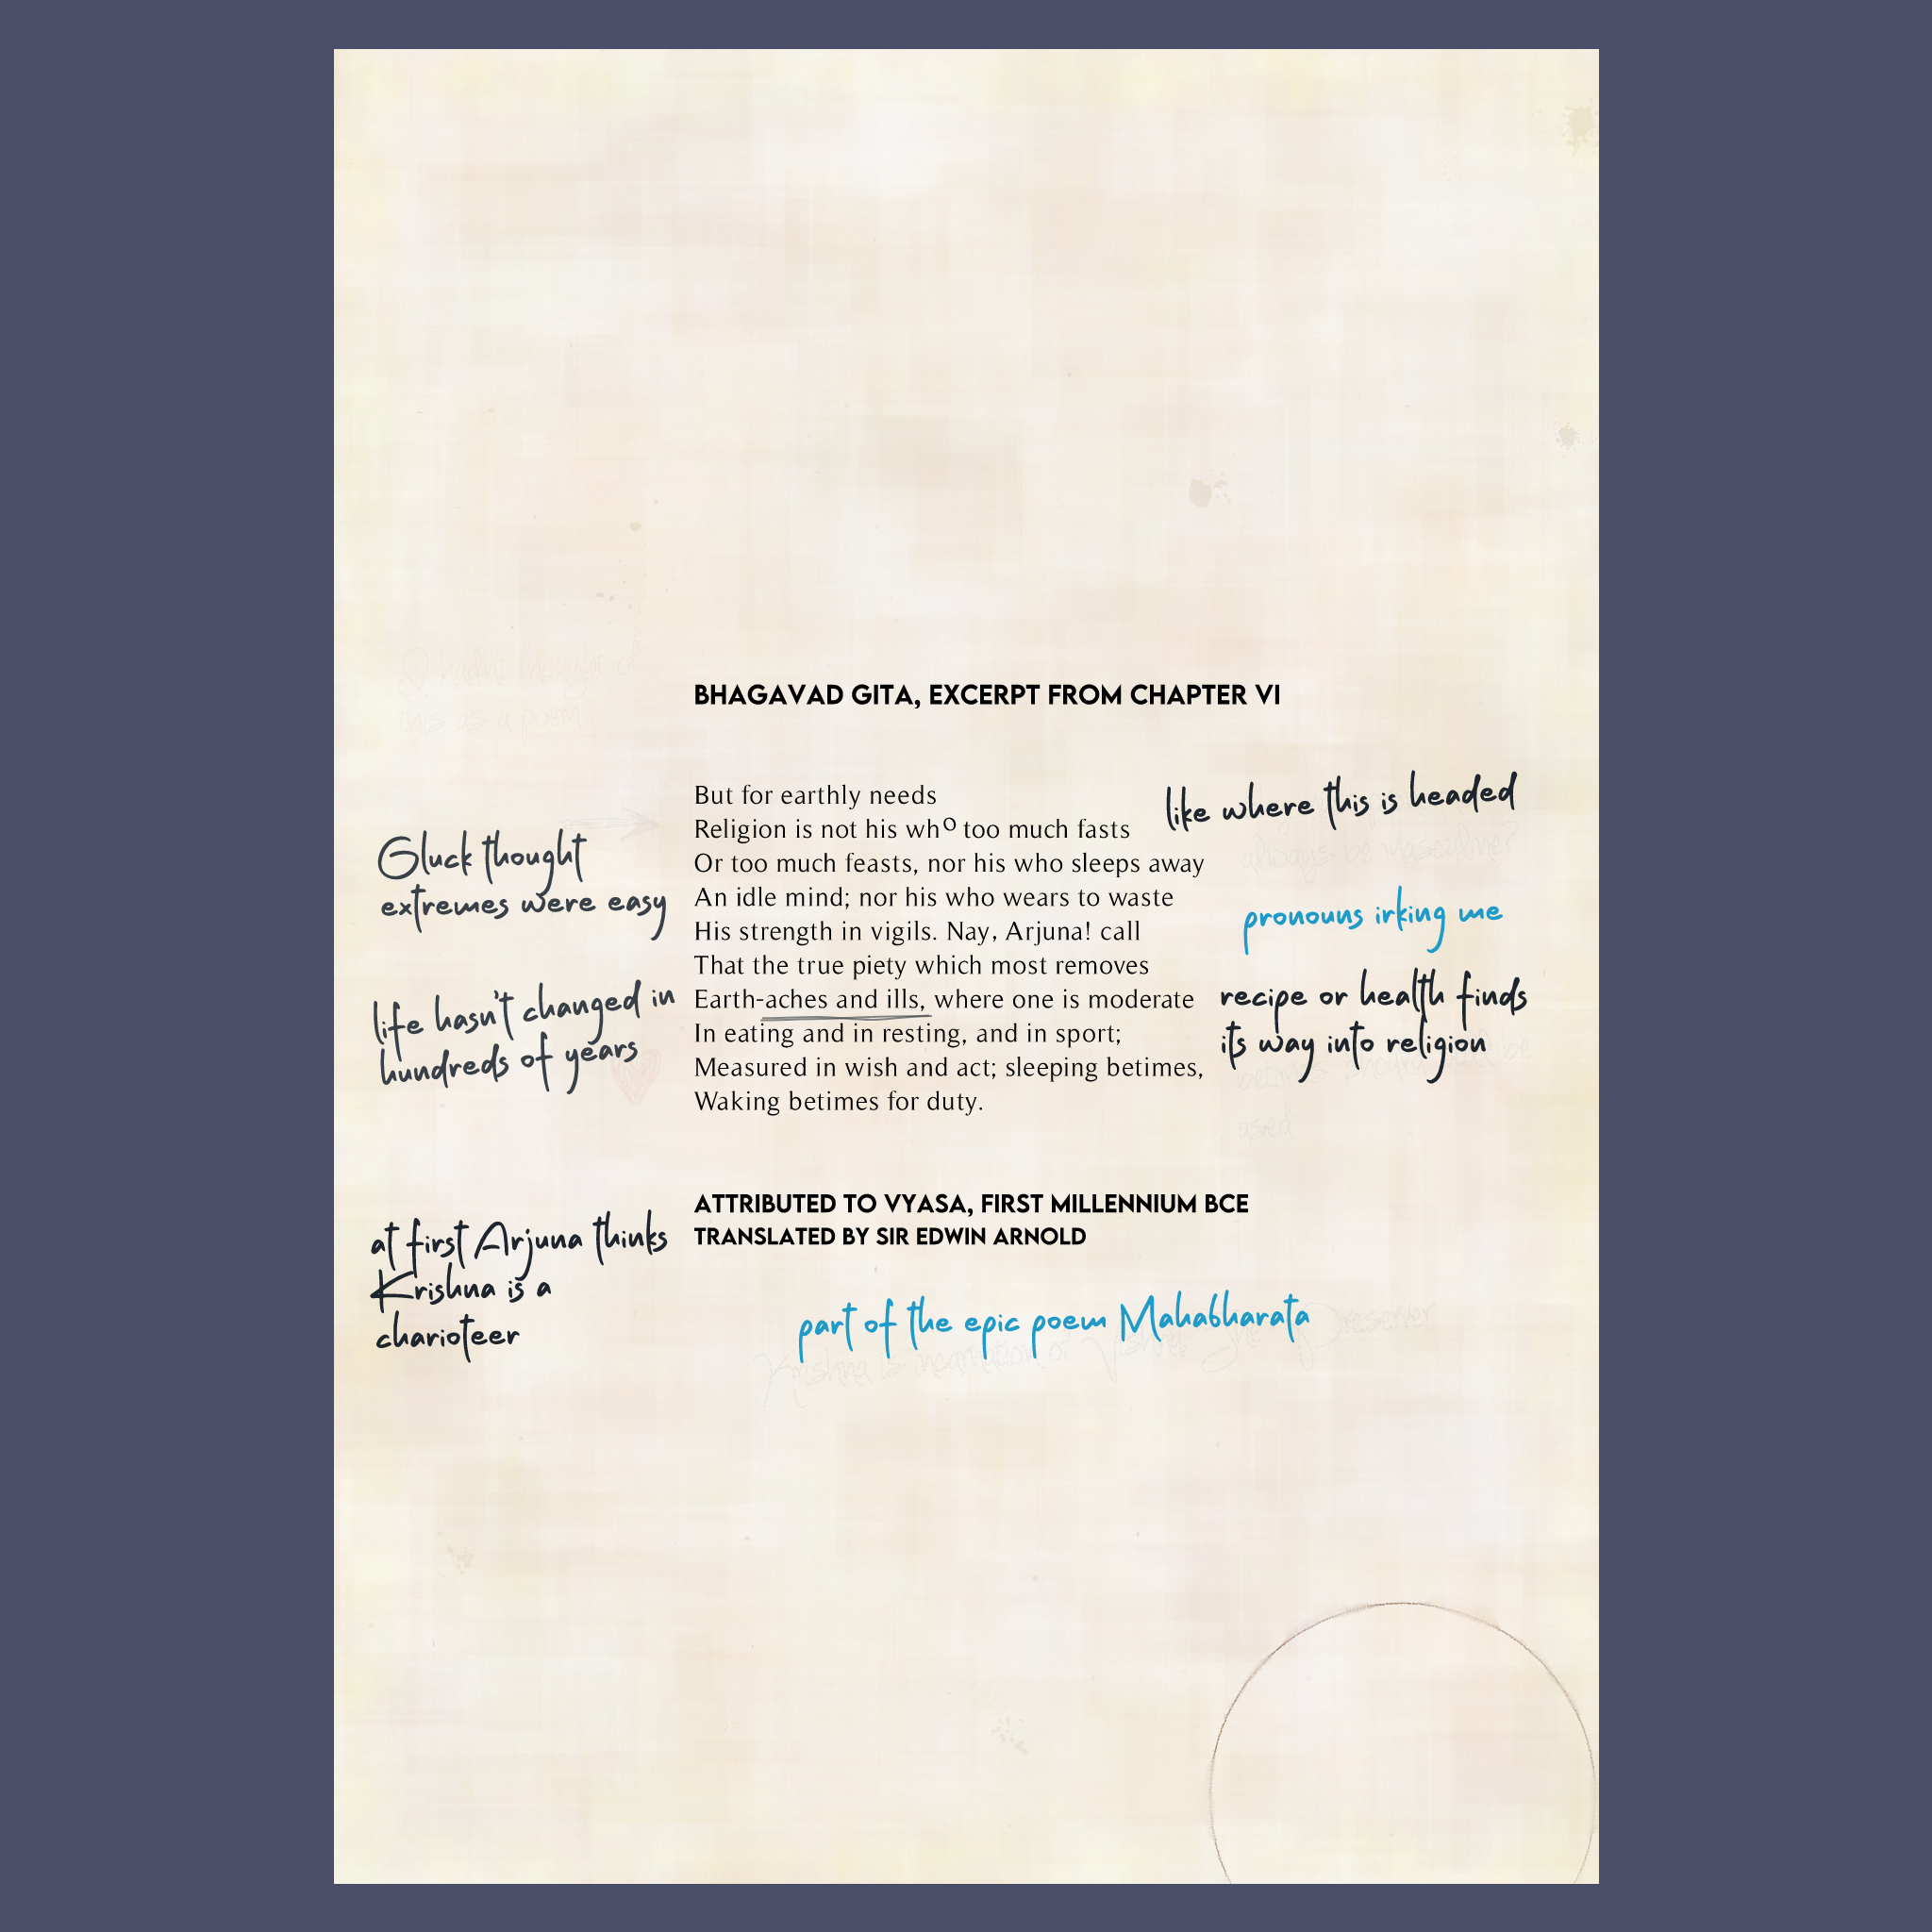 BHAGAVAD GITA, EXCERPT FROM CHAPTER VI
But for earthly needs
Religion is not his who too much fasts
Or too much feasts, nor his who sleeps away
An idle mind; nor his who wears to waste
His strength in vigils. Nay, Arjuna! call
That the true piety which most removes
Earth-aches and ills, where one is moderate
In eating and in resting, and in sport;
Measured in wish and act; sleeping betimes,
Waking betimes for duty.
ATTRIBUTED TO VYASA, FIRST MILLENNIUM BCE
TRANSLATED BY SIR EDWIN ARNOLD
this as a poem
Gluck thought
extremes were easy
life hasn't changed in
hundreds of years
at first Arjuna thinks
Krishna is a
charioteer
like where this is headed
always be masculine?
pronouns irking me
recipe or health finds
its way into religion
betimes should be
used
part of the epic poem Mahabharata
Krishna is incarnation of Vishnu the Preserver